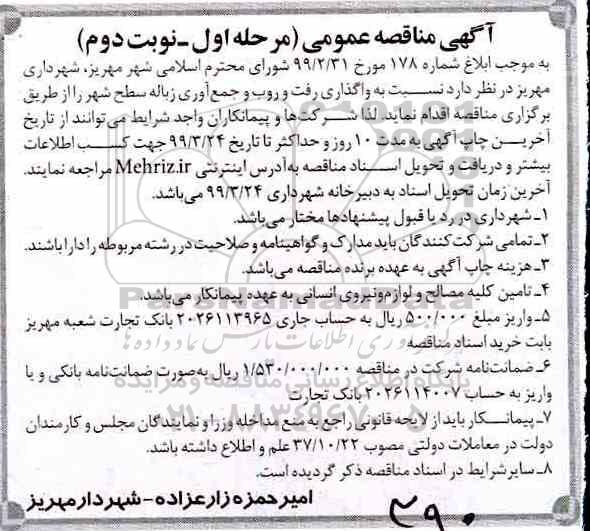 آگهی مناقصه عمومی (مرحله اول ـ نوبت دوم)
به موجب ابلاغ شماره ۱۷۸ مورخ ۹۹/۲/۳۱ شورای محترم اسلامی شهر مهریز، شهرداری
مهریز در نظر دارد نسبت به واگذاری رفت و روب و جمع‌آوری زباله سطح شهر را از طریق
برگزاری مناقصه اقدام نماید. لذا شرکت‌ها و پیمانکاران واجد شرایط می‌توانند از تاریخ
آخرین چاپ آگهی به مدت ۱۰ روز و حداکثر تا تاریخ ۹۹/۳/۲۴ جهت کسب اطلاعات
بیشتر و دریافت و تحویل اسناد مناقصه به آدرس اینترنتی Mehriz.ir مراجعه نمایند.
آخرین زمان تحویل اسناد به دبیرخانه شهرداری ۹۹/۳/۲۴ می‌باشد.
۱ـ شهرداری در رد یا قبول پیشنهادها مختار می‌باشد.
۲ـ تمامی شرکت‌کنندگان باید مدارک و گواهینامه و صلاحیت در رشته مربوطه را دارا باشند.
۳ـ هزینه چاپ آگهی به عهده برنده مناقصه می‌باشد.
۴ـ تامین کلیه مصالح و لوازم و نیروی انسانی به عهده پیمانکار می‌باشد.
۵ـ واریز مبلغ ۵۰۰/۰۰۰ ریال به حساب جاری ۲۰۲۶۱۱۳۹۶۵ بانک تجارت شعبه مهریز
بابت خرید اسناد مناقصه
۶ـ ضمانت‌نامه شرکت در مناقصه ۱/۵۳۰/۰۰۰/۰۰۰ ریال به‌صورت ضمانت‌نامه بانکی و یا
واریز به حساب ۲۰۲۶۱۱۴۰۰۷ بانک تجارت
۷ـ پیمانکار باید از لایحه قانونی راجع به منع مداخله وزرا و نمایندگان مجلس و کارمندان
دولت در معاملات دولتی مصوب ۳۷/۱۰/۲۲ علم و اطلاع داشته باشد.
۸ـ سایر شرایط در اسناد مناقصه ذکر گردیده است.
امیرحمزه زارعزاده - شهردار مهریز
۳۹۰